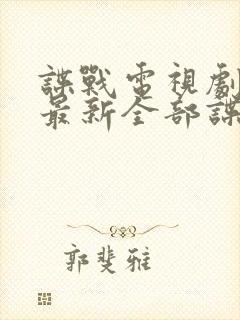 諜戰電視劇
最新全部諜
郭斐雅